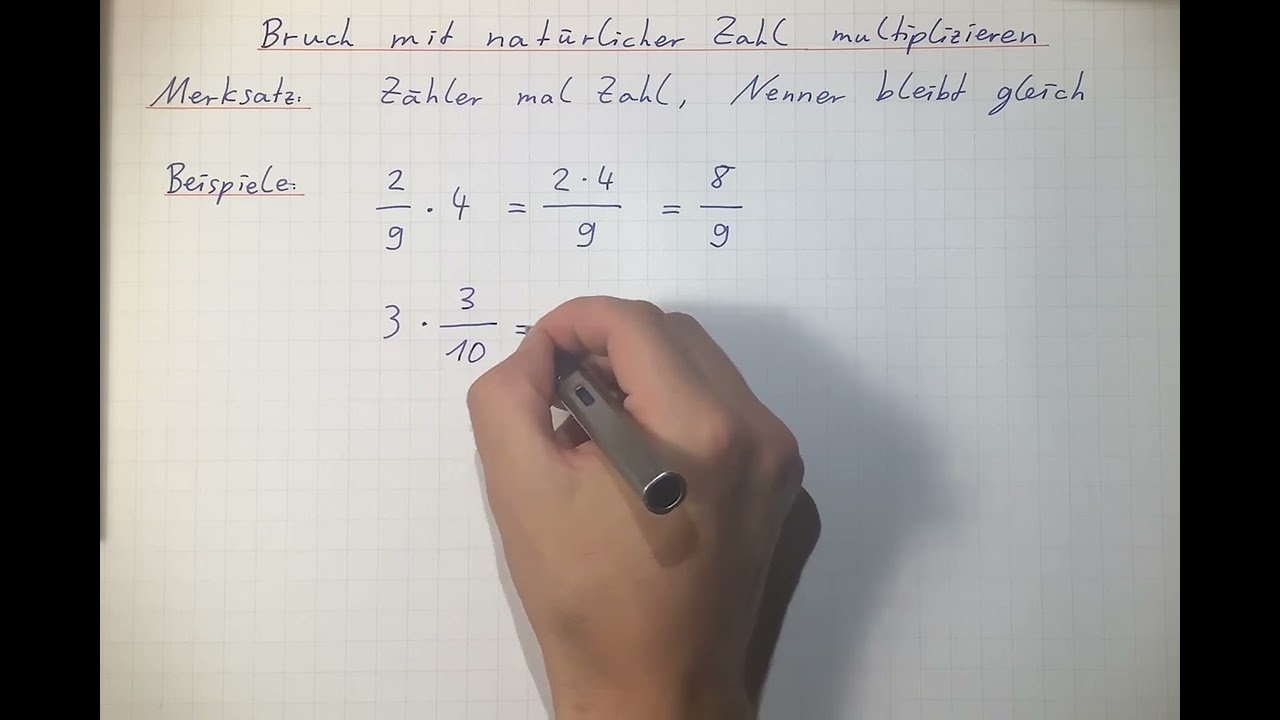 Bruch mit natürlicher Zahl multiplizieren
Merksatz: Zähler mal Zahl, Nenner bleibt gleich
Beispiele: 2/9 · 4 = 2·4/9 = 8/9
3 · 3/10 =